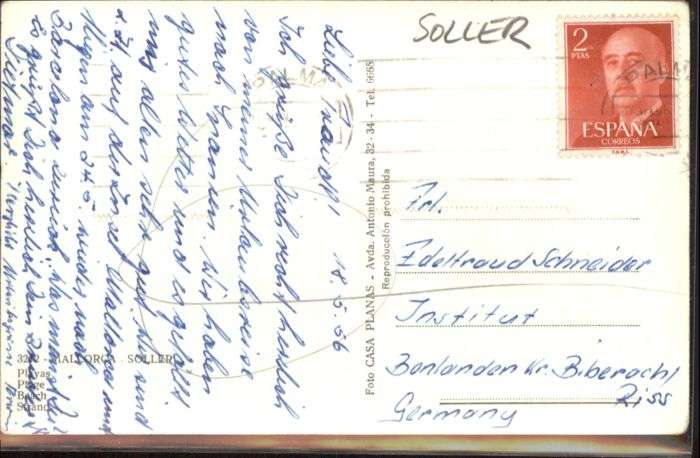 SOLLER
2
PTAS
ESPAÑA
CORREOS
PALMA
Liebe Traudl!
18.5.66
Ich grüße Dich recht herzlich
von meiner Urlaubsreise
nach Spanien. Wir haben
gutes Wetter und es gefällt
mir alles sehr gut. Wir sind
z. Zt auf der Insel Mallorca und
fliegen am 24.5. wieder nach
Barcelona zurück. Was machst Du?
Es grüßt Dich herzlich Dein
Dietmar
Frl.
Edeltraud Schneider
Institut
Bonlanden Kr. Biberach/
Riss
Germany
Foto CASA PLANAS - Avda. Antonio Maura, 32-34 - Tel.
Reproducción prohibida
MALLORCA SOLLER
Playas
Plage
Beach
Strand